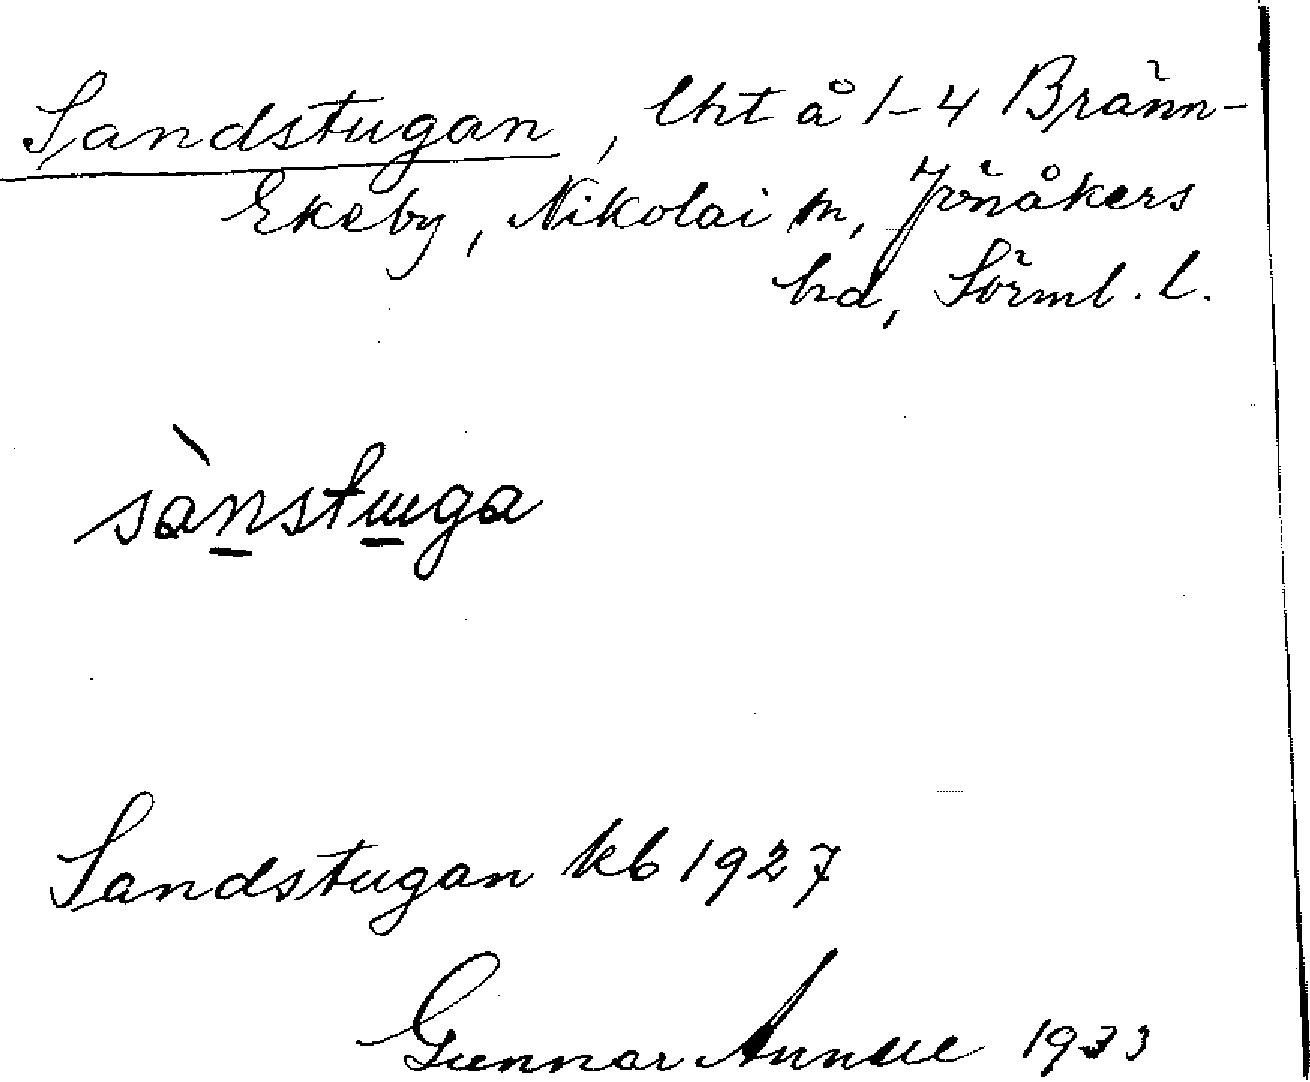 Sandstugan, lht å 1-4 Bränn-
Ekeby, Nikolai sn, Jönåkers
hd, Sörml. l.
sànstɯga
Sandstugan kb 1927
Gunnar 1933